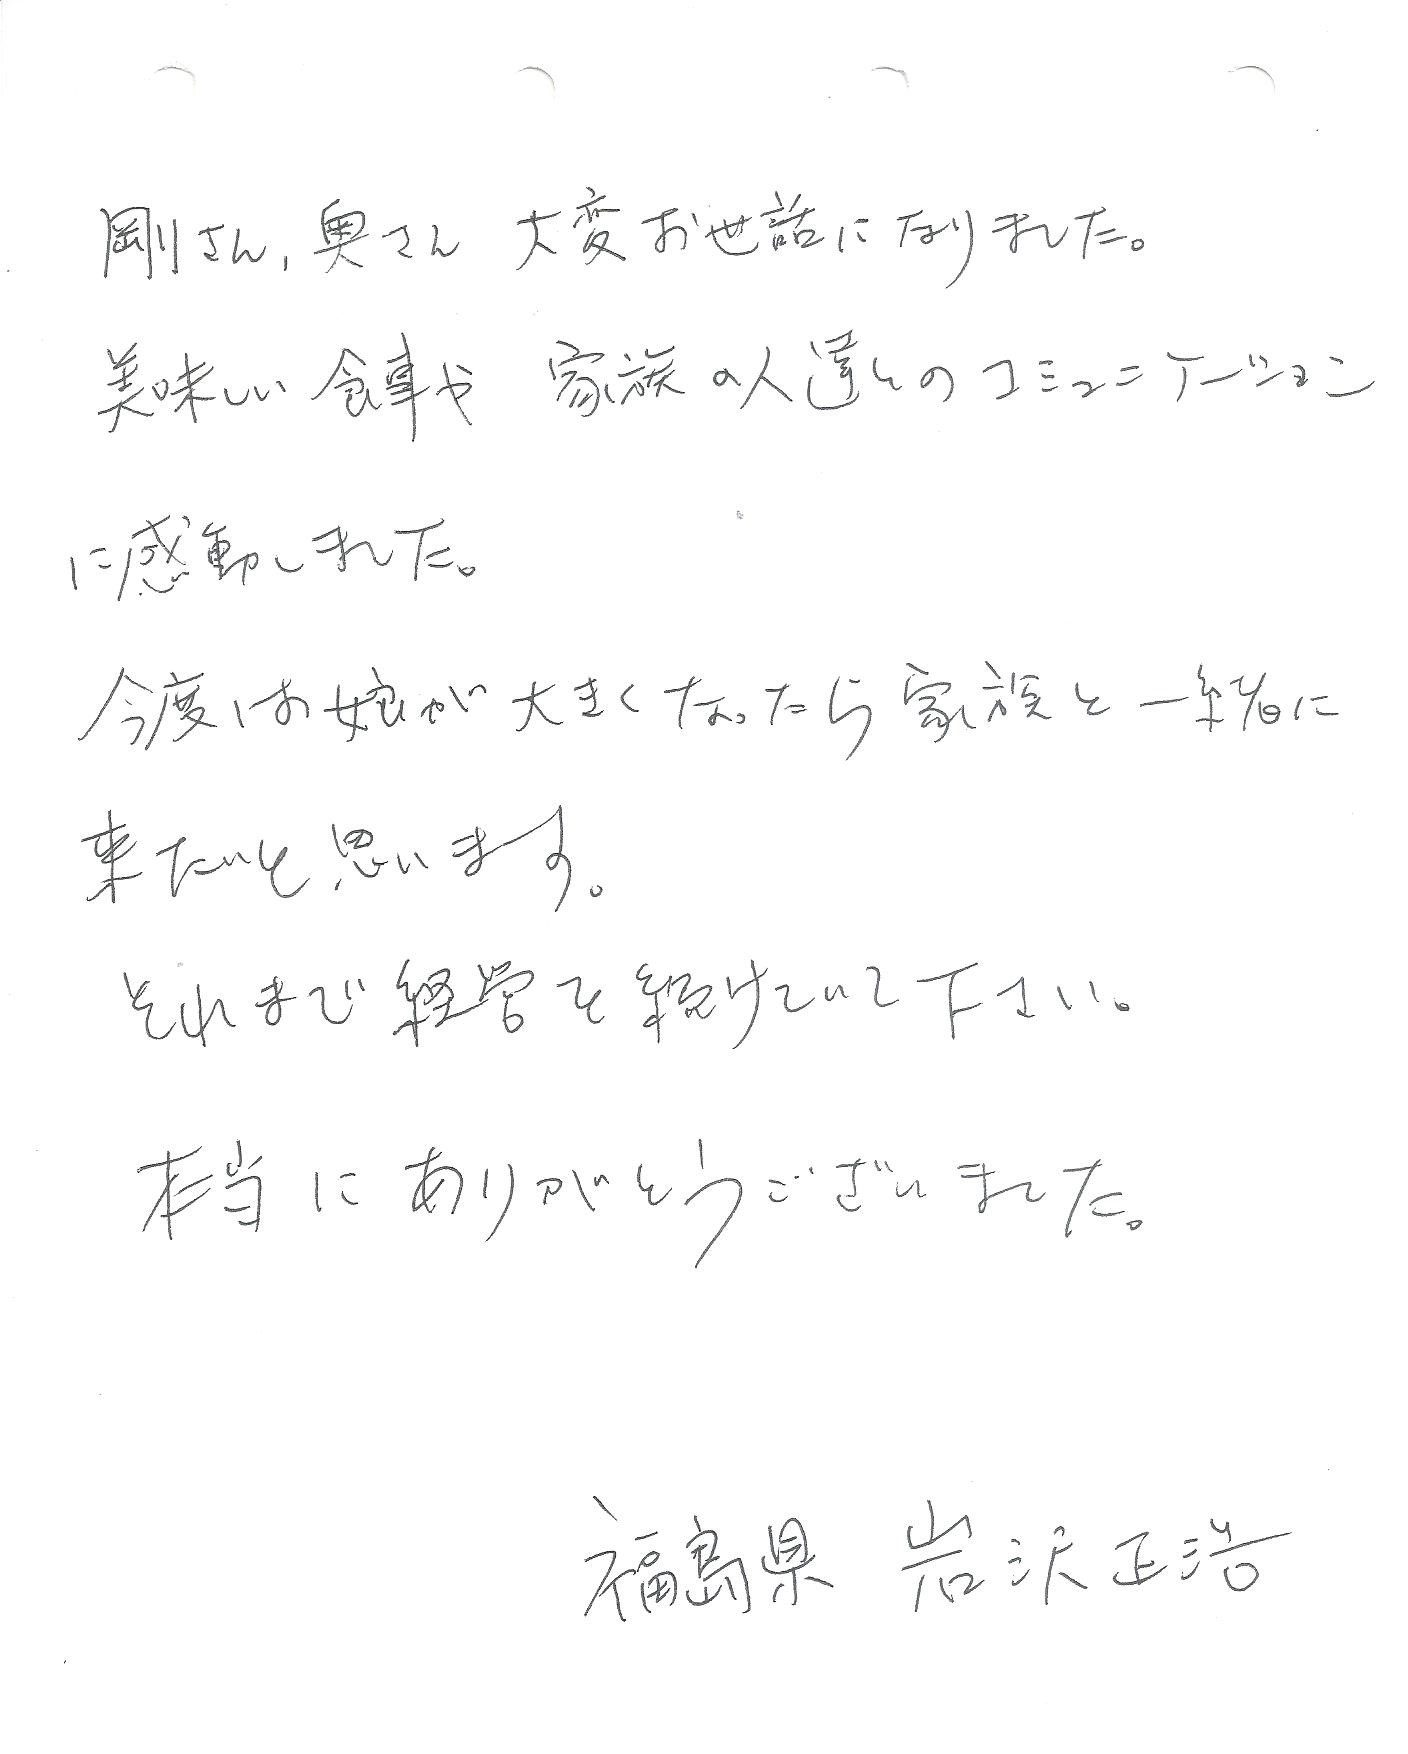 剛さん,奥さん 大変お世話になりました。
美味しい食事や 家族の人達とのコミュニケーション
に感動しました。
今度はお娘が大きくなったら家族と一緒に
来たいと思います。
それまで経営を続けていて下さい。
本当にありがとうございました。
福島県 岩沢正浩